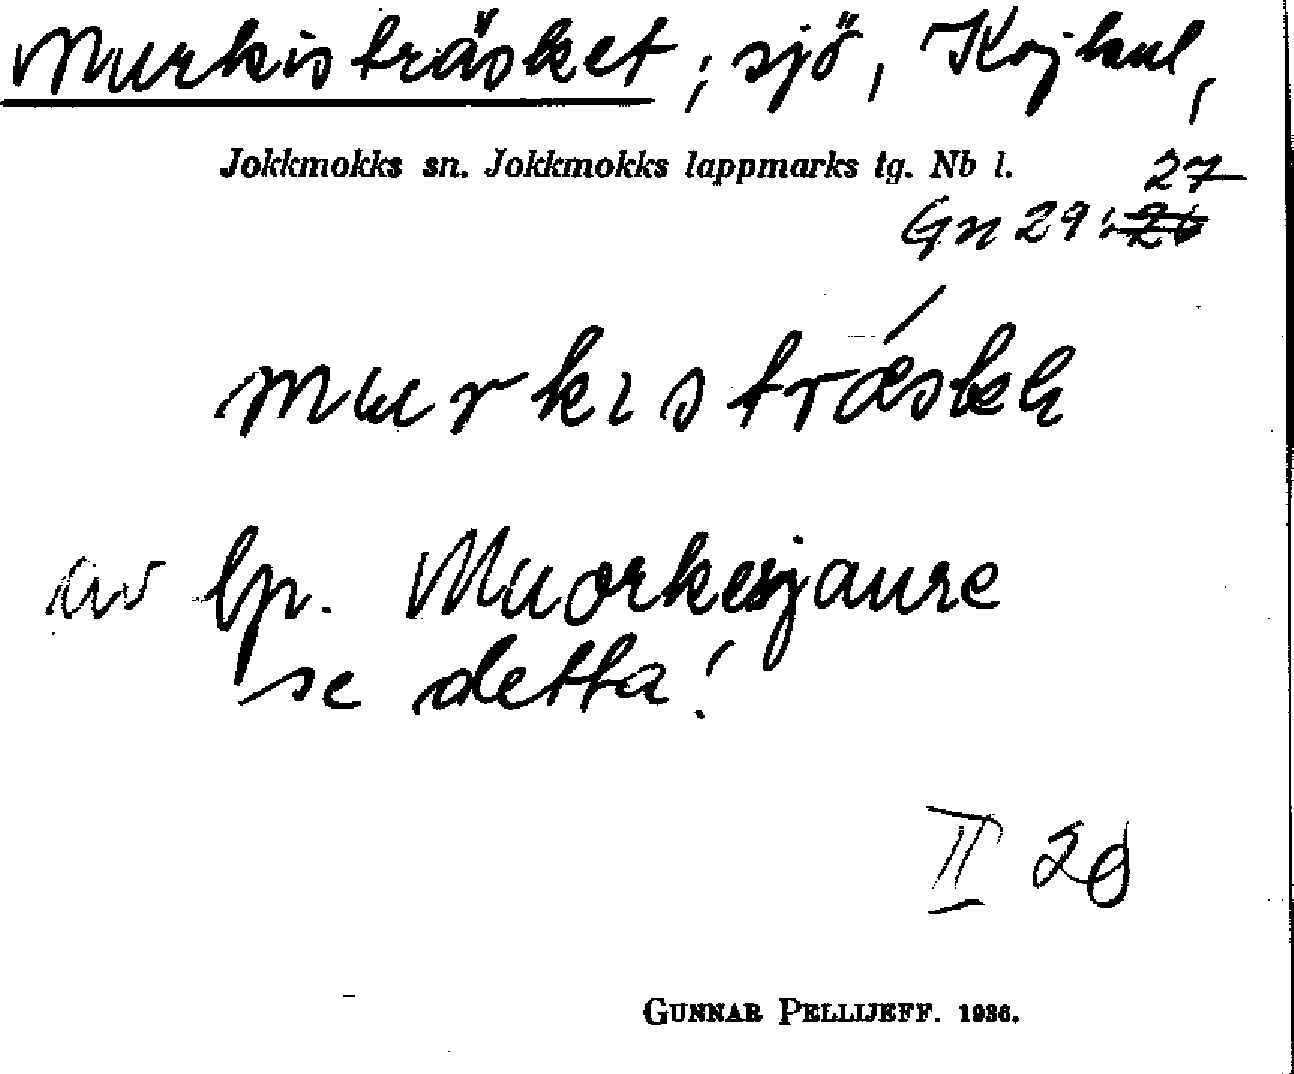 Murkisträsket, sjö, Kojkul,
Jokkmokks sn. Jokkmokks lappmarks tg. Nb l.
27
Gn 29: 26
murkistrǽsket
av lp. Muorkesjaure
se detta!
II 29
GUNNAR PELLIJEFF. 1936.